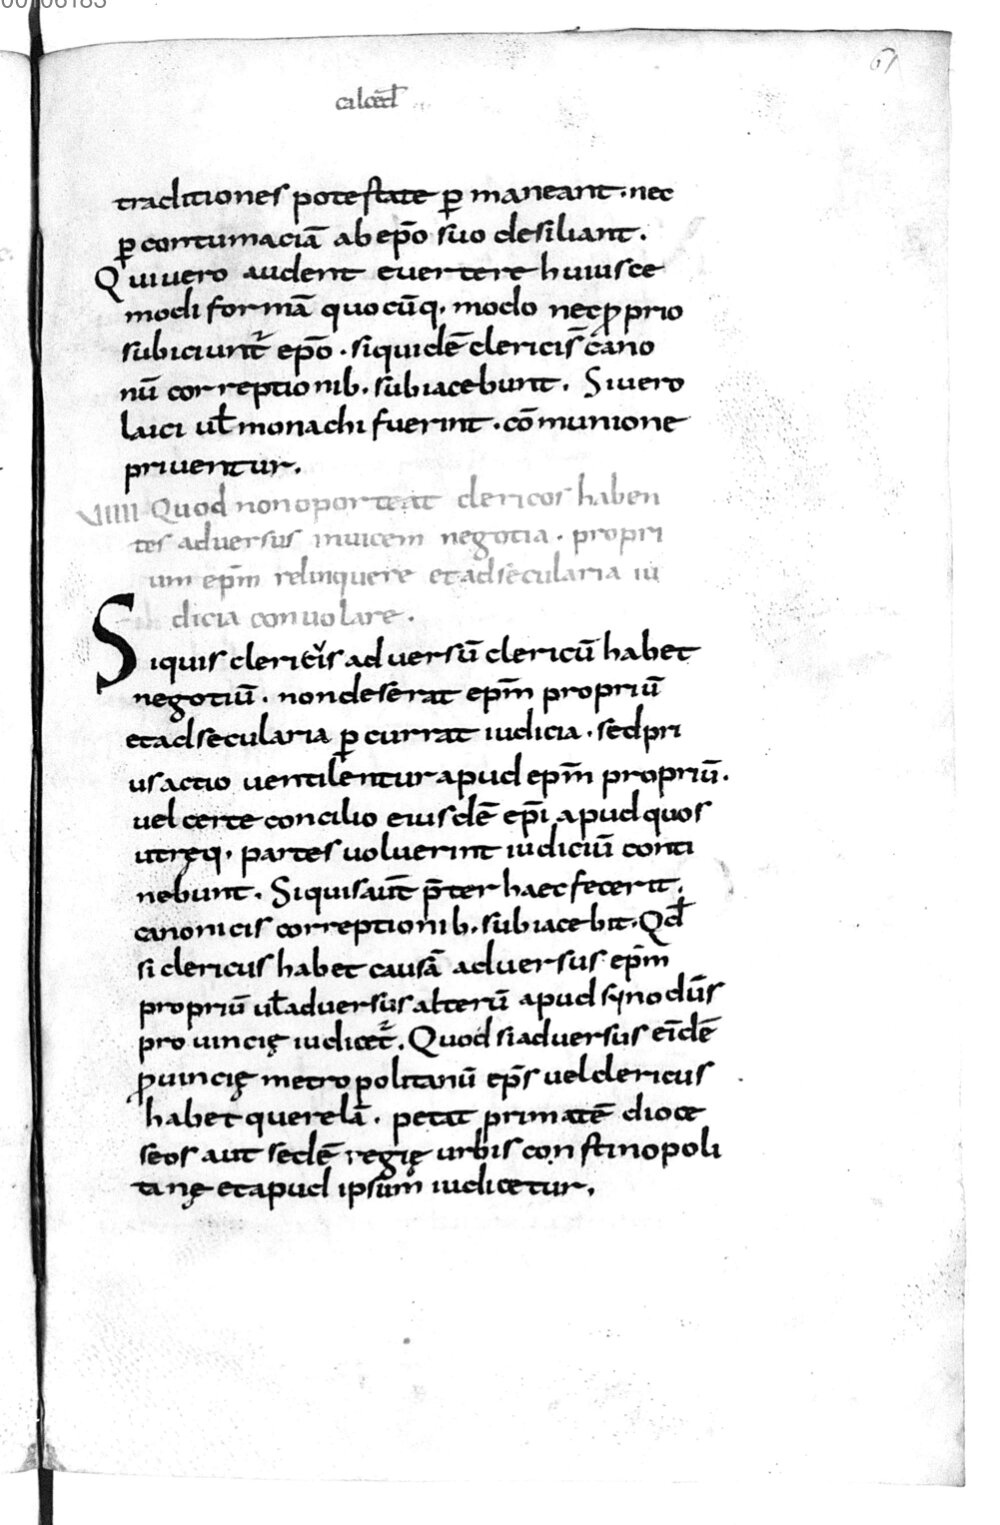 00106183
61
calced̄
traditiones potestate ꝑ maneant · nec
ꝑ contumaciā ab ep̄o suo desiliant.
Qui uero audent euertere huiusce
modi formā quocūq· modo nec ꝓprio
subiciunt̄ ep̄o · siquidē clericis cano
nū correptionib· subiacebunt. Si uero
laici ul̄ monachi fuerint · cōmunione
priuentur.
VIIII Quod non oporteat clericos haben
tes aduersus inuicem negotia · propri
um ep̄m relinquere et ad secularia iu
dicia conuolare.
Siquis clericus aduersū clericū habet
negotiū · non deserat ep̄m propriū
et ad secularia ꝑcurrat iudicia · sed pri
us actio uentilentur apud ep̄m propriū.
uel certe concilio eiusdē ep̄i apud quos
utręq· partes uoluerint iudiciū conti
nebunt. Siquis aut̄ p̄ter haec fecerit.
canonicis correptionib· subiacebit. Qd̄
si clericus habet causā aduersus ep̄m
propriū ul̄ aduersus alterū apud synodūs
prouincię iudicet̄. Quod si aduersus eīdē
ꝓuincię metropolitanū ep̄s uel clericus
habet querelā · petat primatē dioce
seos aut sedē regię urbis constinopoli
tanę et apud ipsum iudicetur.